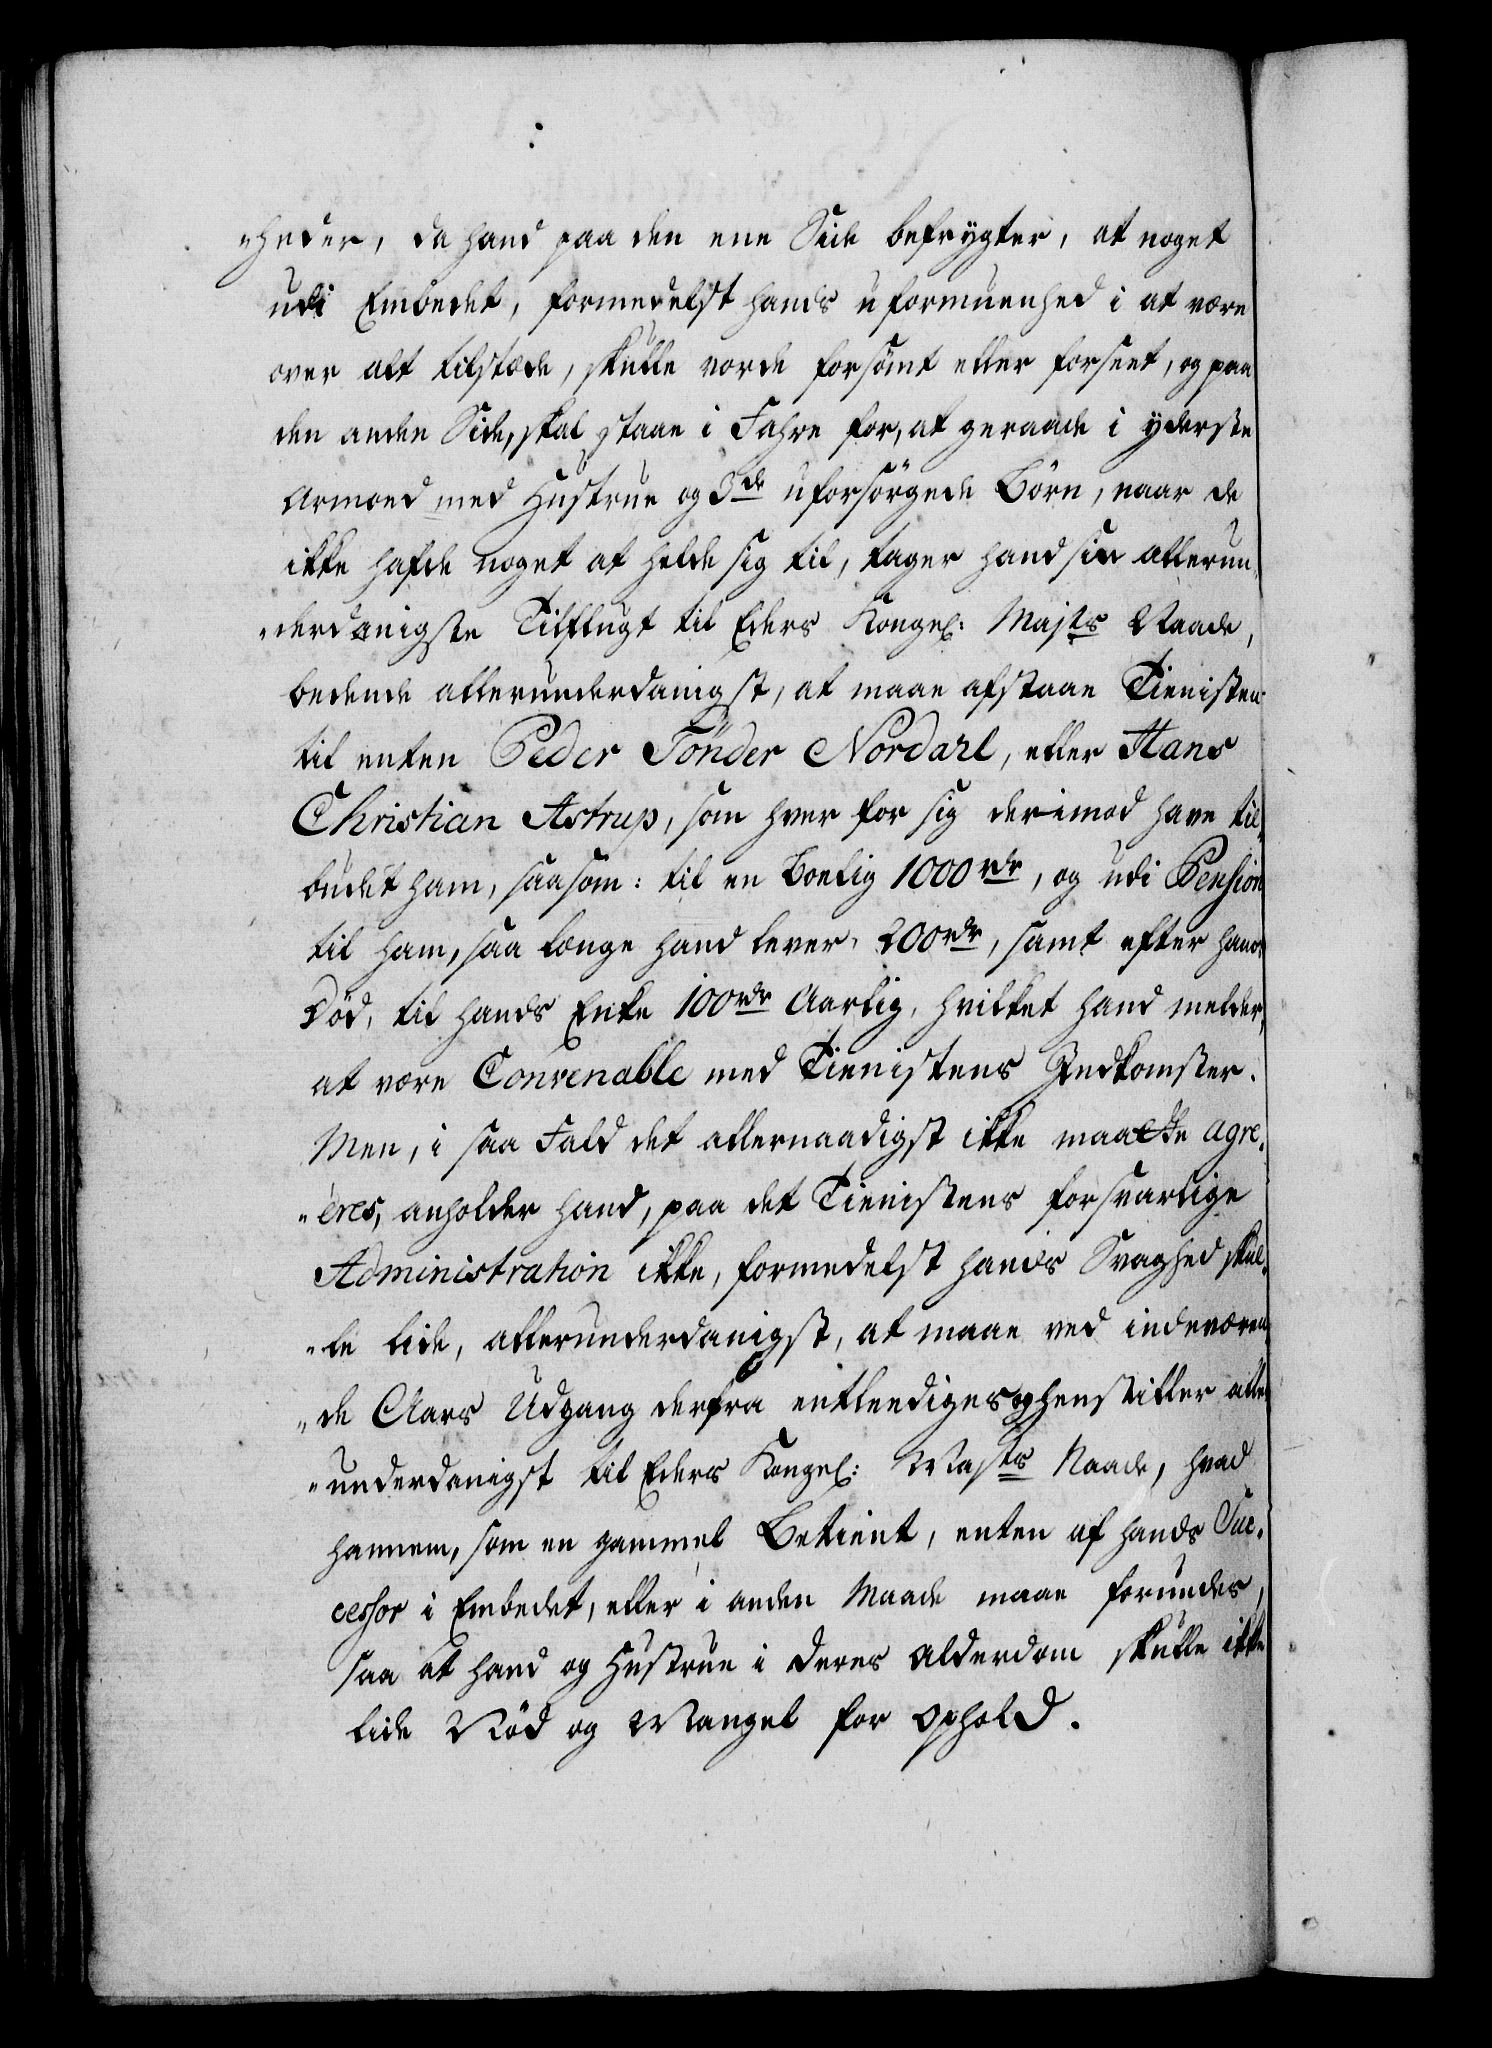 "heder, da hand paa den ene Side befrygter, at noget
udi Embedet, formedelst hands uformuenhed i at være
over alt tilstæde, skulle vorde forsömt eller forseet, og paa
den anden Side, skal staae i Fahre for, at geraade i yderste
Armoed med Hustrue og 3de uforsörgede Börn, naar de
ikke hafde noget at holde sig til, tager hand sin allerun-
"derdanigste Tilflugt til Eders Kongel: Majts Naade,
bedende allerunderdanigst, at maae afstaae Tienisten
til enten Peder Tönder Nordahl, eller Hans
Christian Astrup, som hver for sig derimod have til-
budet ham, saasom: til en Boelig 1000 rdr, og udi Pension
til ham, saa længe hand lever, 200 rdr, samt efter hans
Död, til hands Enke 100 rdr Aarlig, hvilket hand melder,
at være Convenable med Tienistens Indkomster.
Men, i saa Fald det allernaadigst ikke maatte agre-
"eres, anholder hand, paa det Tienistens forsvarlige
Administration ikke, formedelst hands Svaghed skul-
"le lide, allerunderdanigst, at maae ved indeværen-
"de Aars Udgang derfra entleediges og henstiller aller-
"underdanigst til Eders Kongel: Majts Naade, hvad
hannem, som en gammel Betient, enten af hands Suc-
cessor i Embedet, eller i anden Maade maae forundes,
saa at hand og Hustrue i deres Alderdom skulle ikke
lide Nöd og Mangel for Ophold.